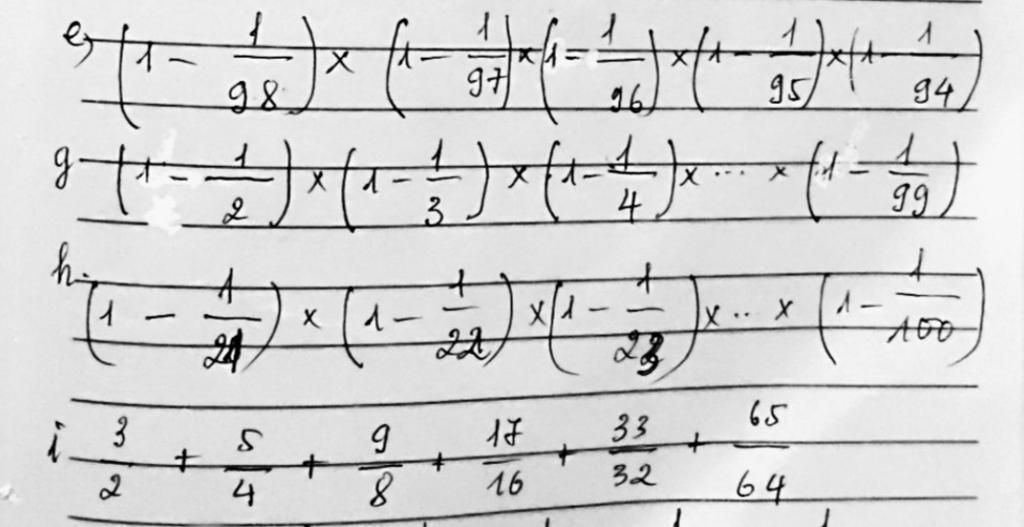 e) (1 - 1/98) x (1 - 1/97) x (1 - 1/96) x (1 - 1/95) x (1 - 1/94)
g (1 - 1/2) x (1 - 1/3) x (1 - 1/4) x ... x (1 - 1/99)
h. (1 - 1/21) x (1 - 1/22) x (1 - 1/23) x .. x (1 - 1/100)
i 3/2 + 5/4 + 9/8 + 17/16 + 33/32 + 65/64